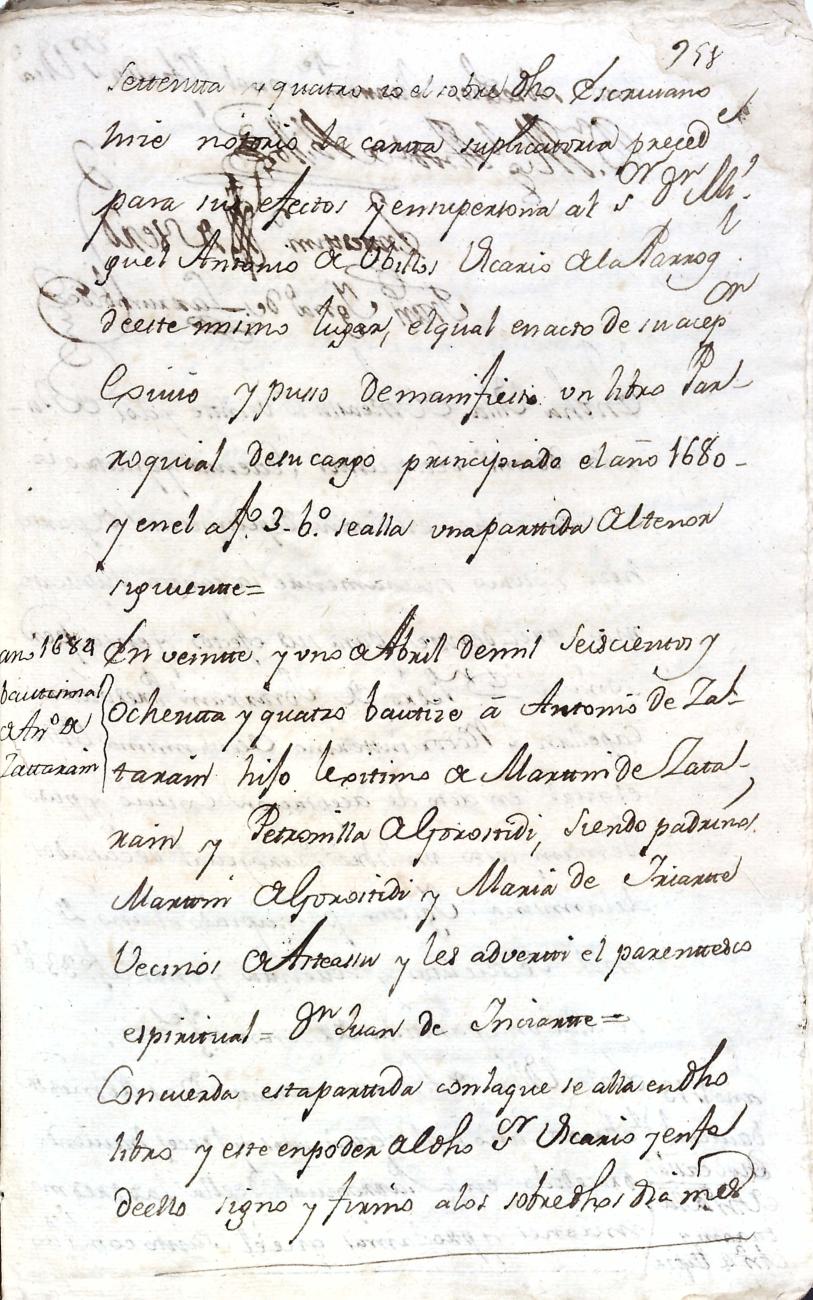 958
Settentta y quatro io el sobre dho Escriuano
hize notorio la cartta suplicattoria preced.te
para sus efectos y en su persona al s.or dn Mi-
guel Antonio de Vbillos Vicario de la Parrog.l
de este mismo lugar, el qual en acto de su acep.on
Exiuio y pusso de manifiesto vn libro Par-
roquial de su cargo principiado el año 1680 -
y en el a fo. 3. bo. se alla vna parttida del tenor
siguientte =
año 1684
bauttismal
de Anto. de
Zattarain
En veintte y vno de Abril de mil Seiscientos y
Ochentta y quatro bautize â Antonio de Zat-
tarain hijo lexitimo de Marttin de Zata-
rain y Petronilla de Gorostidi, siendo padrinos
Marttin de Gorostidi y Maria de Iriartte
Vecinos de Asteassu y les adverti el parenttesco
espiritual = Dn Juan de Inciartte =
Concuerda esta parttida con la que se alla en dho
libro y este en poder del dho Sr Vicario y en fe
de ello signo y firmo a los sobre dhos dia mes